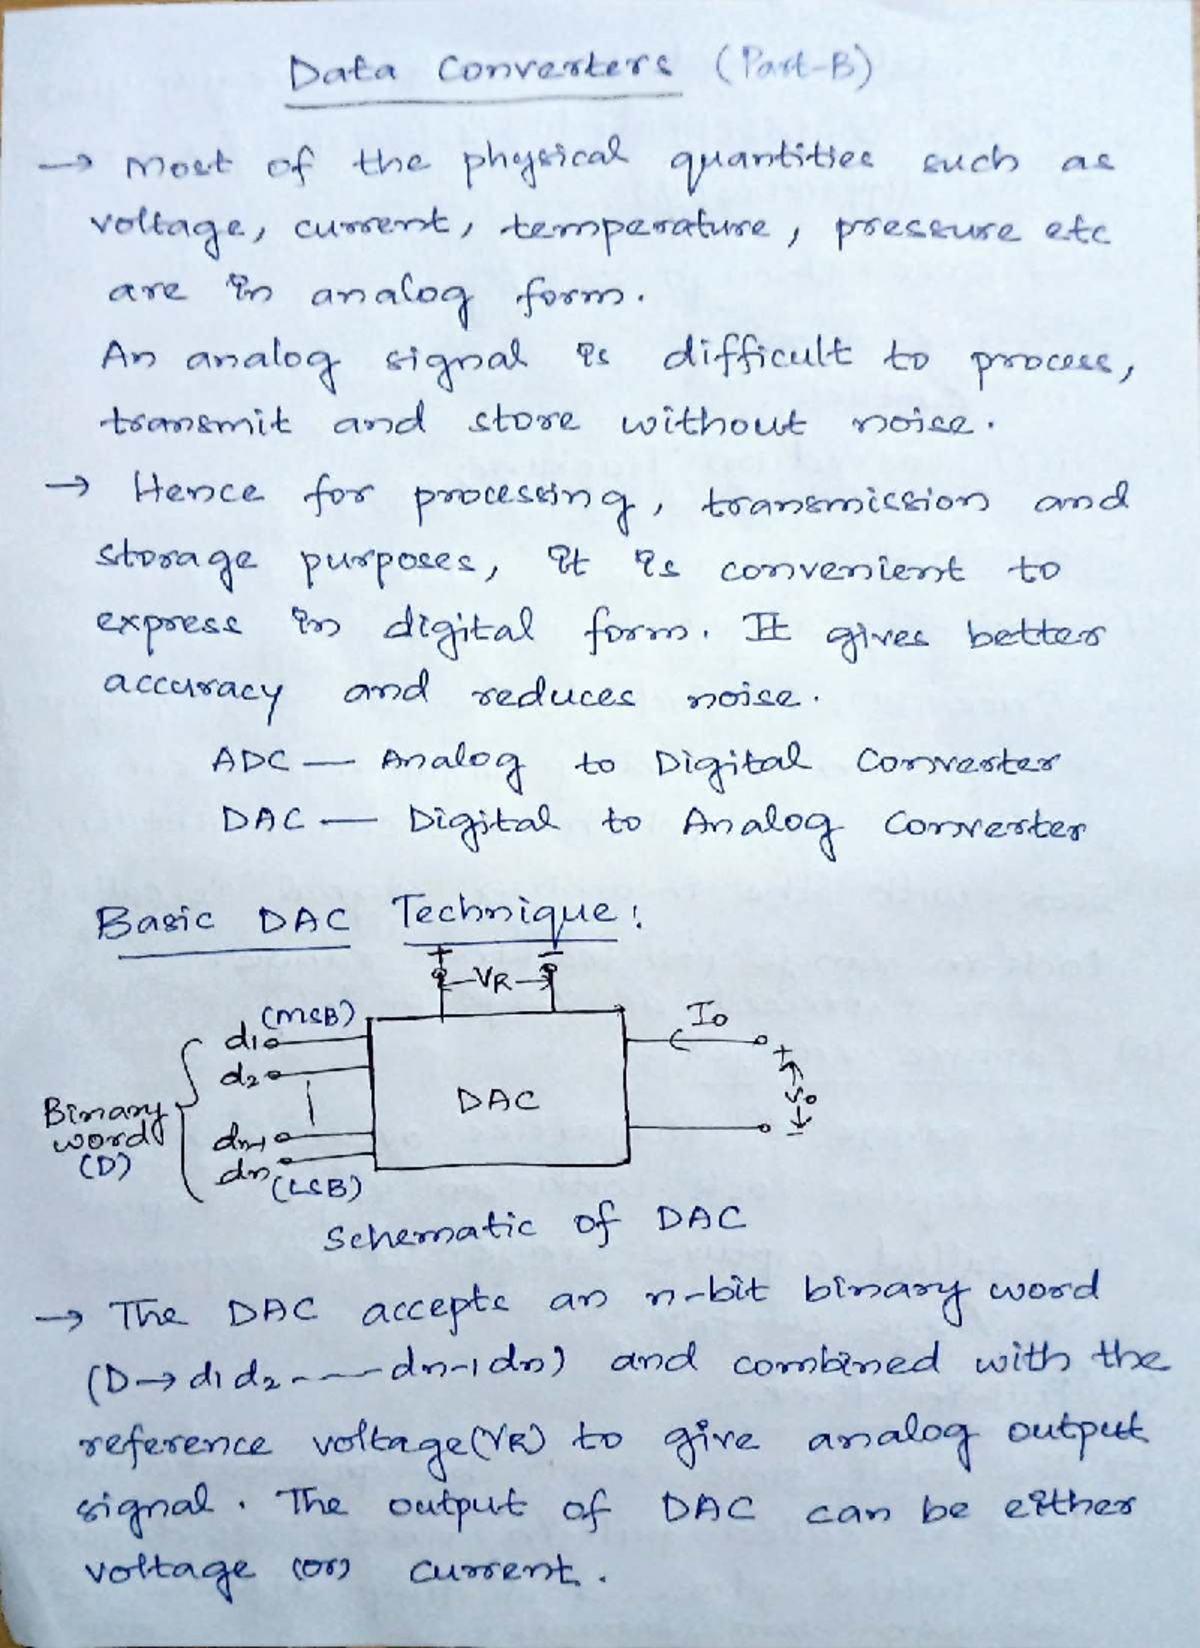 Data Converters (Part-B)
→ Most of the physical quantities such as
voltage, current, temperature, pressure etc
are in analog form.
An analog signal is difficult to process,
transmit and store without noise.
→ Hence for processing, transmission and
storage purposes, it is convenient to
express in digital form. It gives better
accuracy and reduces noise.
ADC — Analog to Digital Converter
DAC — Digital to Analog Converter
Basic DAC Technique:
+ VR −
(MSB)
d1
d2
Binary word (D)
dn-1
dn
(LSB)
DAC
Io
+ Vo −
Schematic of DAC
→ The DAC accepts an n-bit binary word
(D→d1 d2 ---- dn-1 dn) and combined with the
reference voltage (VR) to give analog output
signal. The output of DAC can be either
voltage (or) current.